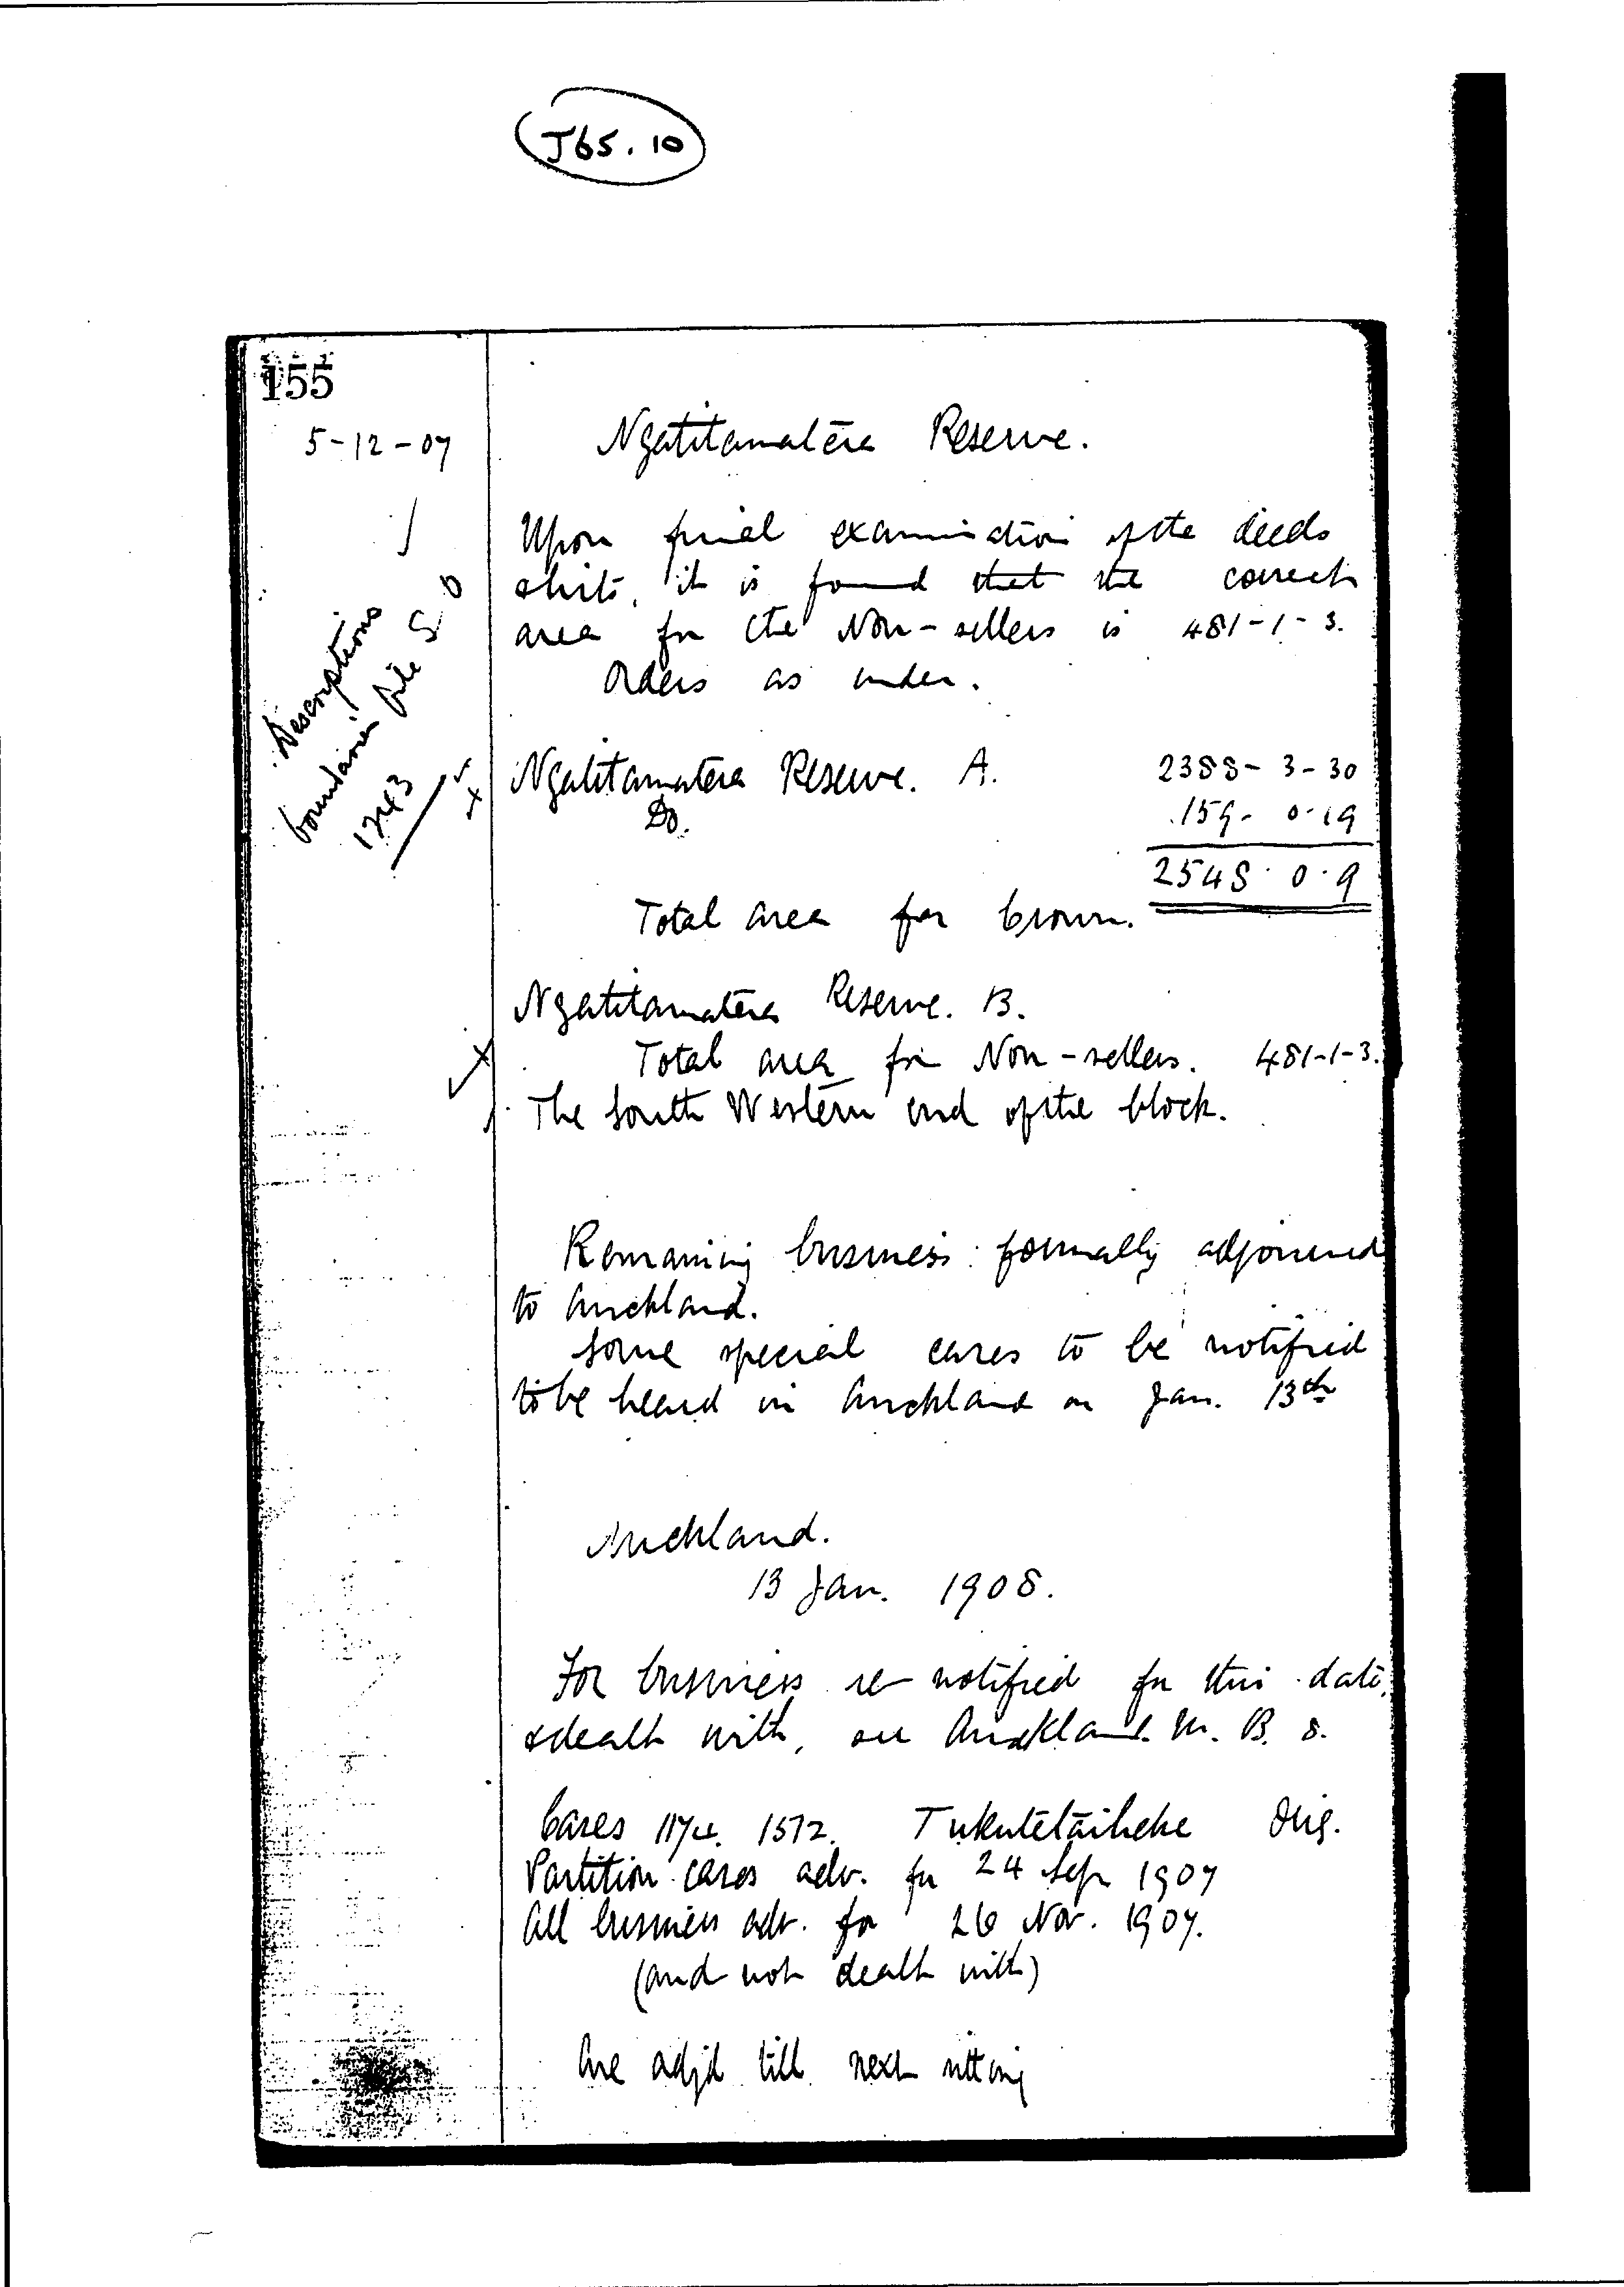 J65.10
155
5-12-07
Ngatitamatera Reserve.
Upon final examination of the deeds
& lists, it is found that the correct
area for the Non-sellers is 481-1-3.
Orders as under.
Descriptions
boundaries file S O
1743
Ngatitamatera Reserve. A. 2388-3-30
Do. 159-0-19
2548.0.9
Total area for Crown.
Ngatitamatera Reserve. B.
Total area for Non-sellers. 481-1-3.
The South Western end of the block.
Remaining business formally adjourned
to Auckland.
Some special cases to be notified
to be heard in Auckland on Jan. 13th
Auckland.
13 Jan. 1908.
For business re-notified for this date,
& dealt with, see Auckland M. B. 8.
Cases 1174. 1572. Orig.
Partition cases adv. for 24 Sep 1907
All business adv. for 26 Nov. 1907.
(and not dealt with)
Are adjd till next sitting